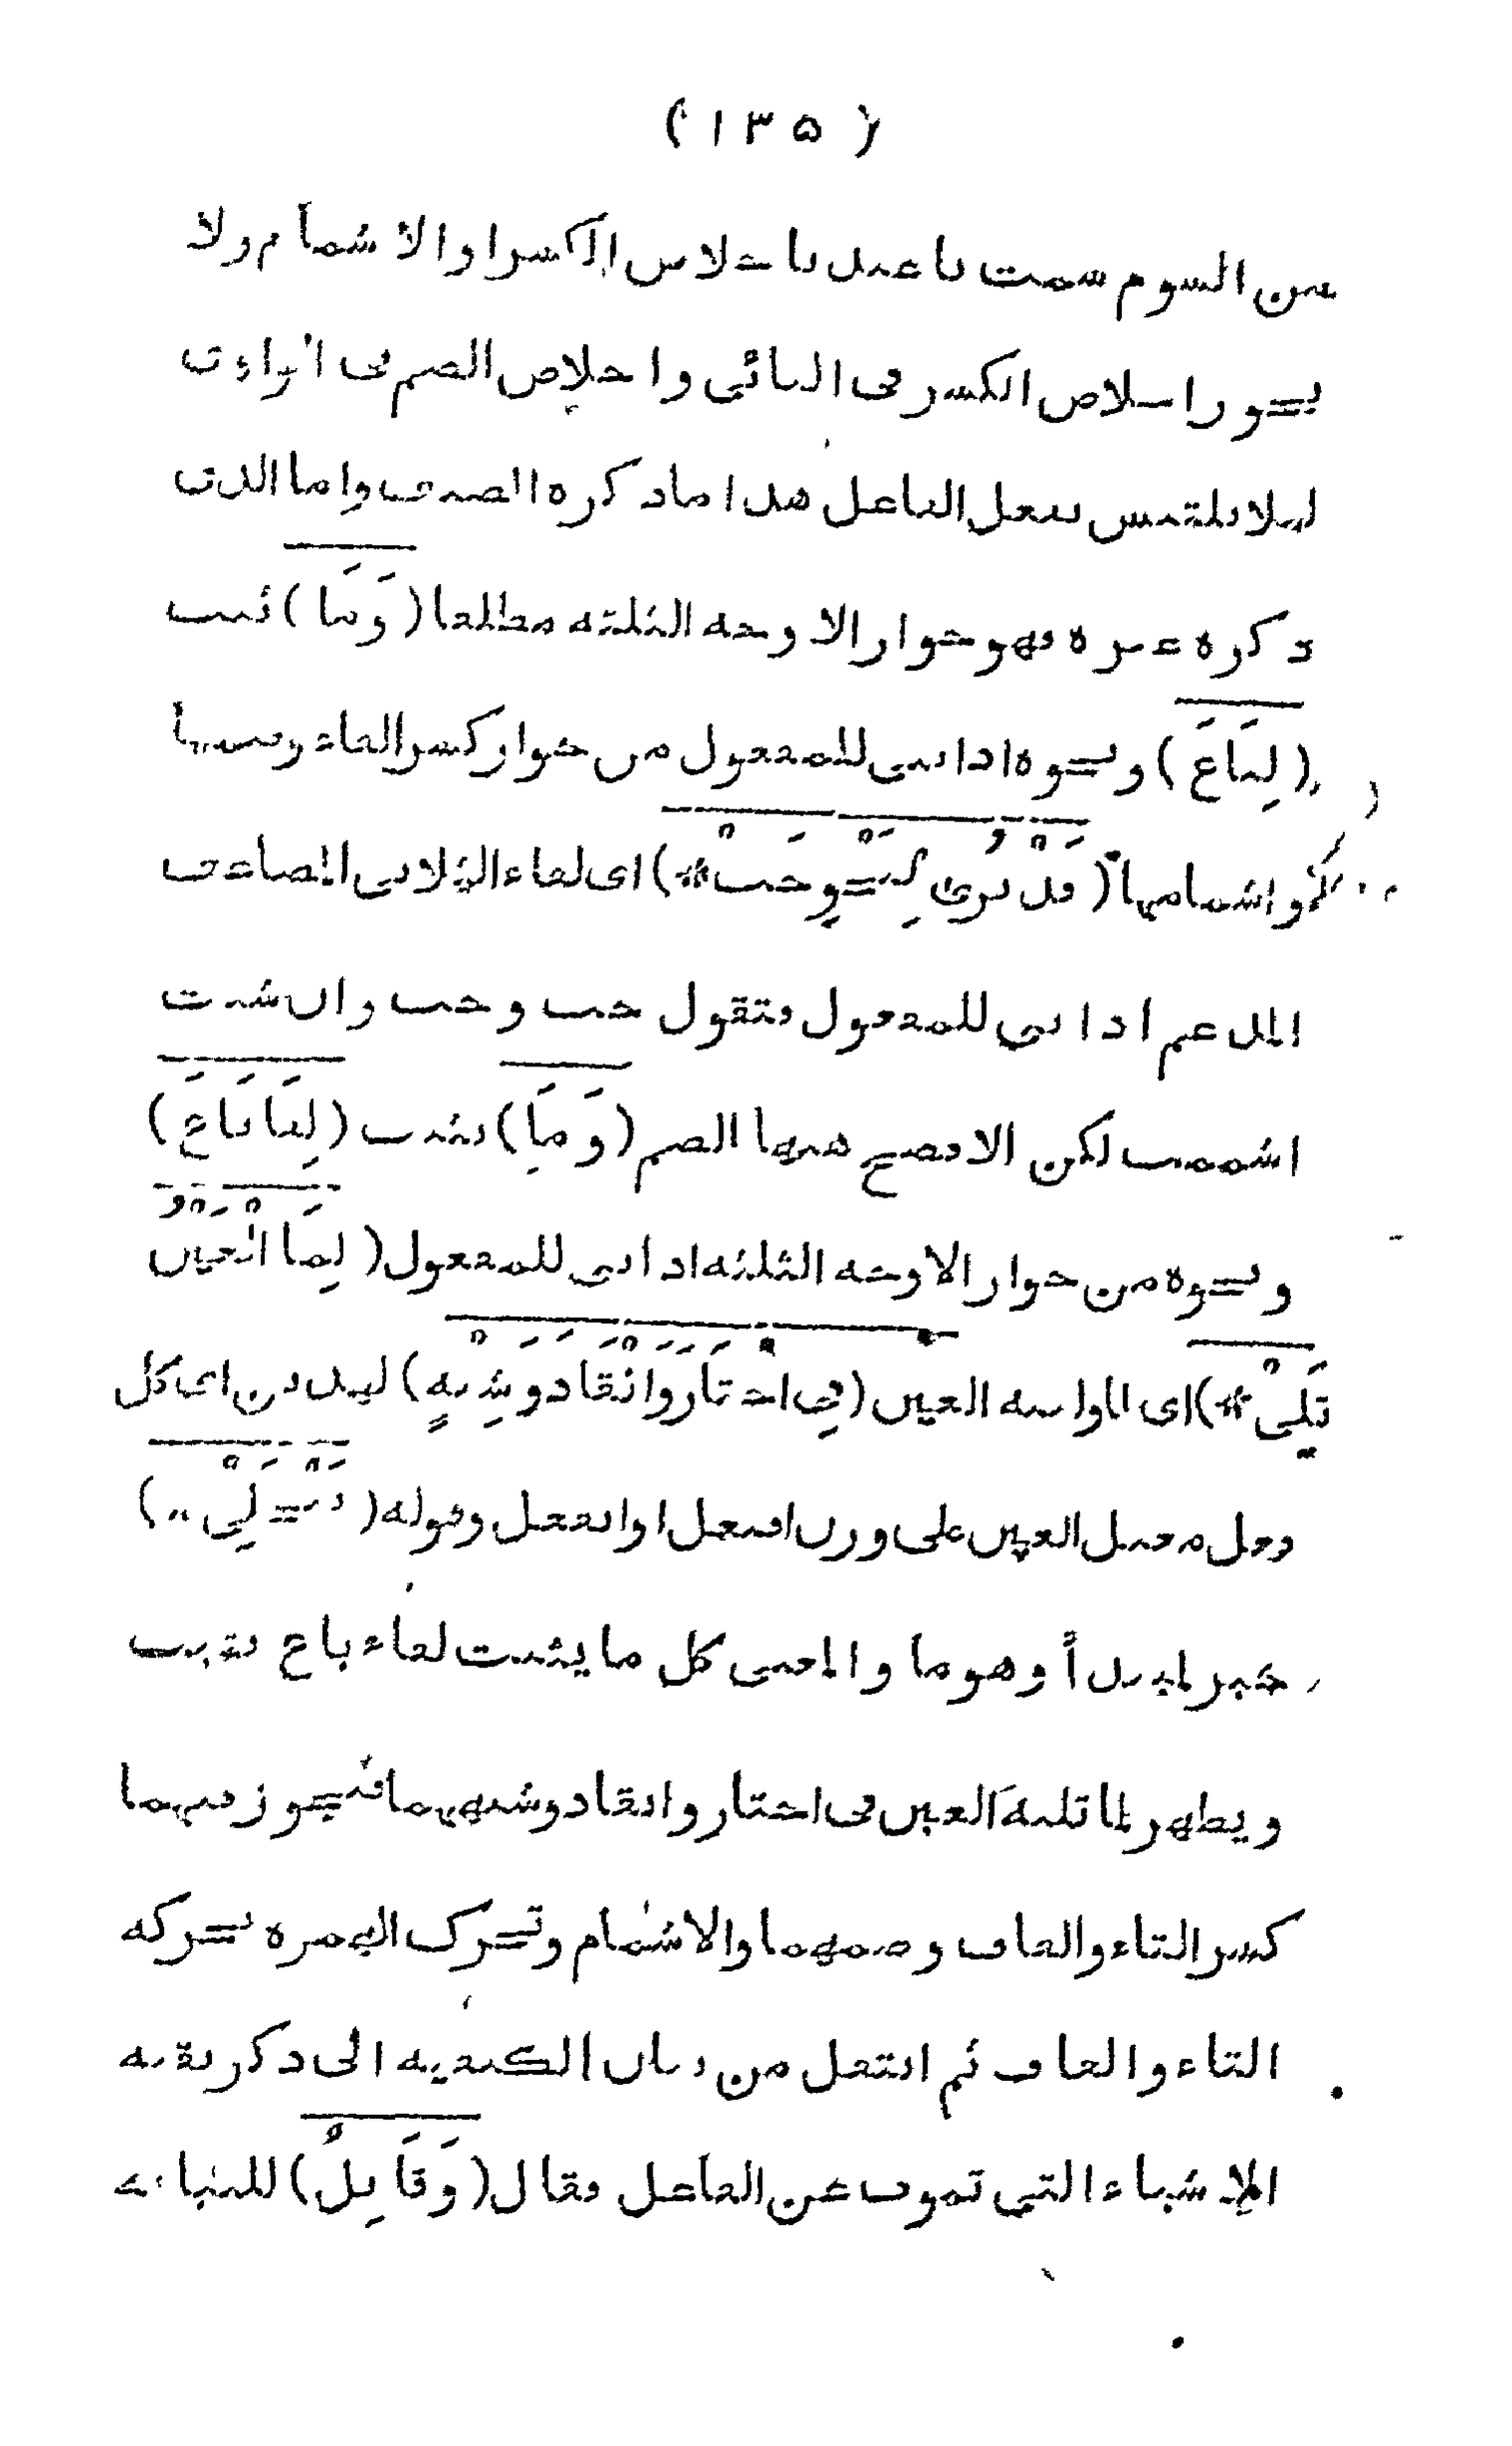 (١٣٥)
من السوم سمت يا عبد باخلاص الكسر او الاشمام ولا
يجوز اخلاص الكسر في اليائي واخلاص الضم في الواوي
لئلا يلتبس بفعل الفاعل هذا ما ذكره المصنف واما الذي
ذكره غيره فهو جواز الاوجه الثلثة مطلقا (وَمَا) ثبت
(لِبَاعَ) ونحوه اذا بنى للمفعول من جواز كسر الفاء وضمها
واشمامها (قَدْ يُرَى لِنَحْوِ حَبّْ*) اى لفاء الثلاثي المضاعف
المدغم اذا بنى للمفعول فتقول حب وحب وان شئت
اشممت لكن الافصح هنها الضم (وَمَا) يثبت (لِفَا بَاعَ)
ونحوه من جواز الاوجه الثلثة اذا بنى للمفعول (لِمَا الْعَيْنُ
تَلِىْ*) اى الواليه العين (فِي اخْتَارَ وَانْقَادَ وَشِبْهٍ) لهذين اى كل
فعل معتل العين على وزن افتعل او انفعل وقوله (يَنْجَلِىْ*)
خبر لمبتدأ وهو ما والمعنى كل ما يثبت لفاء باع يثبت
ويظهر لما تليه العين في اختار وانقاد وشبههما فيجوز فيهما
كسر التاء والقاف وضمهما والاشمام وتحرك الهمزة بحركة
التاء والقاف ثم انتقل من بيان الكيفية الى ذكر بقية
الاشياء التي تنوب عن الفاعل فقال (وَقَابِلٌ) للنيابة